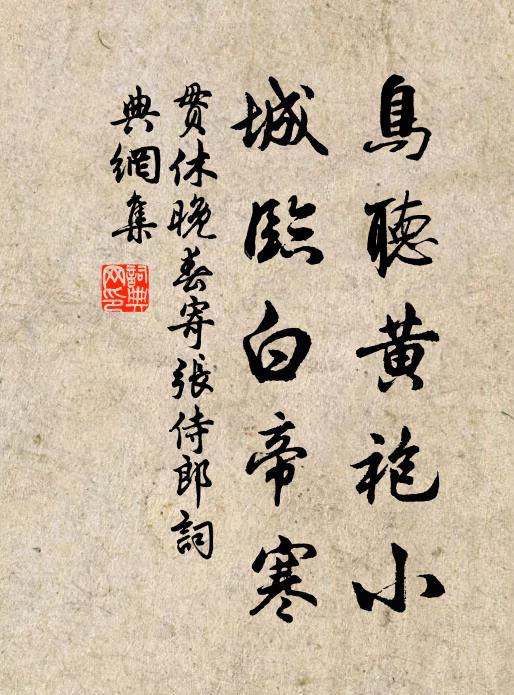 鳥聽黃袍小
城臨白帝寒
貫休晚春寄張侍郎詞
典網集
詞典網印